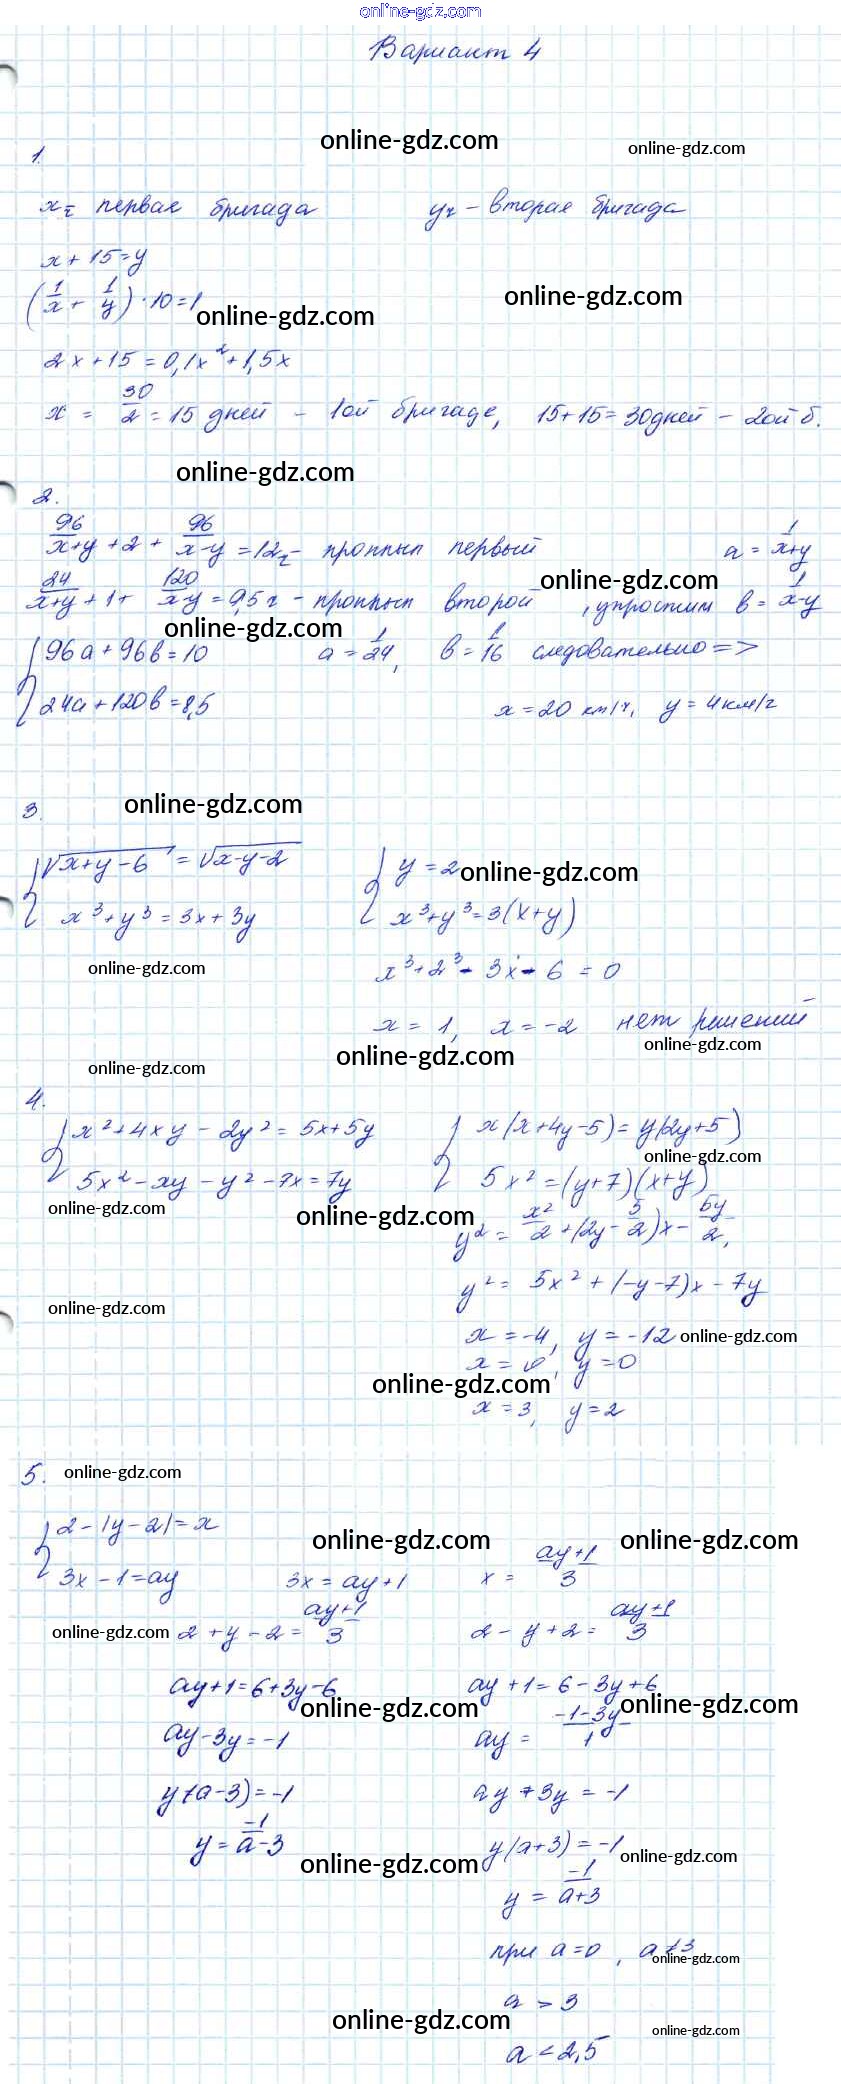 online-gdz.com
Вариант 4
online-gdz.com
online-gdz.com
1.
x - первая бригада   y - вторая бригада
x + 15 = y
(1/x + 1/y) · 10 = 1
online-gdz.com
online-gdz.com
2x + 15 = 0,1x² + 1,5x
x = 30/2 = 15 дней - 1ой бригаде, 15 + 15 = 30 дней - 2ой б.
online-gdz.com
2.
96/x+y + 2 + 96/x-y = 12 - проплыл первый   a = 1/x+y
online-gdz.com
24/x+y + 1 + 120/x-y = 9,5 г - проплыл второй, упростим в = 1/x-y
online-gdz.com
{ 96a + 96в = 10   a = 1/24, в = 1/16 следовательно =>
24a + 120в = 8,5   x = 20 км/ч, y = 4 км/г
3.
online-gdz.com
{ √x+y-6 = √x-y-2   { y = 2
online-gdz.com
x³ + y³ = 3x + 3y   x³ + y³ = 3(x+y)
online-gdz.com
x³ + 2³ - 3x - 6 = 0
x = 1, x = -2 нет решений
online-gdz.com
online-gdz.com
online-gdz.com
4.
{ x² + 4xy - 2y² = 5x + 5y   { x(x+4y-5) = y(2y+5)
online-gdz.com
5x² - xy - y² - 7x = 7y   5x² = (y+7)(x+y)
online-gdz.com
online-gdz.com
y² = x²/2 + (2y - 5/2)x - 5y/2,
y² = 5x² + (-y-7)x - 7y
online-gdz.com
x = -4, y = -12
online-gdz.com
x = 0, y = 0
online-gdz.com
x = 3, y = 2
5.
online-gdz.com
{ 2 - |y-2| = x
online-gdz.com
online-gdz.com
3x - 1 = ay   3x = ay + 1   x = ay+1/3
online-gdz.com
2 + y - 2 = ay+1/3   2 - y + 2 = ay+1/3
ay + 1 = 6 + 3y - 6   ay + 1 = 6 - 3y + 6
online-gdz.com
online-gdz.com
ay - 3y = -1   ay = -1-3y/1
y(a-3) = -1   ay + 3y = -1
y = -1/a-3   y(a+3) = -1
online-gdz.com
online-gdz.com
y = -1/a+3
при a = 0, a ≠ 3
online-gdz.com
a > 3
online-gdz.com
online-gdz.com
a < 2,5